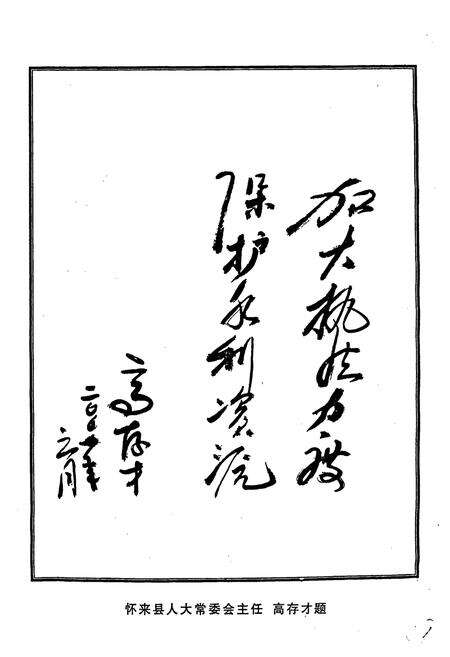 加大执法力度
保护水利资源
高存才
怀来县人大常委会主任 高存才题